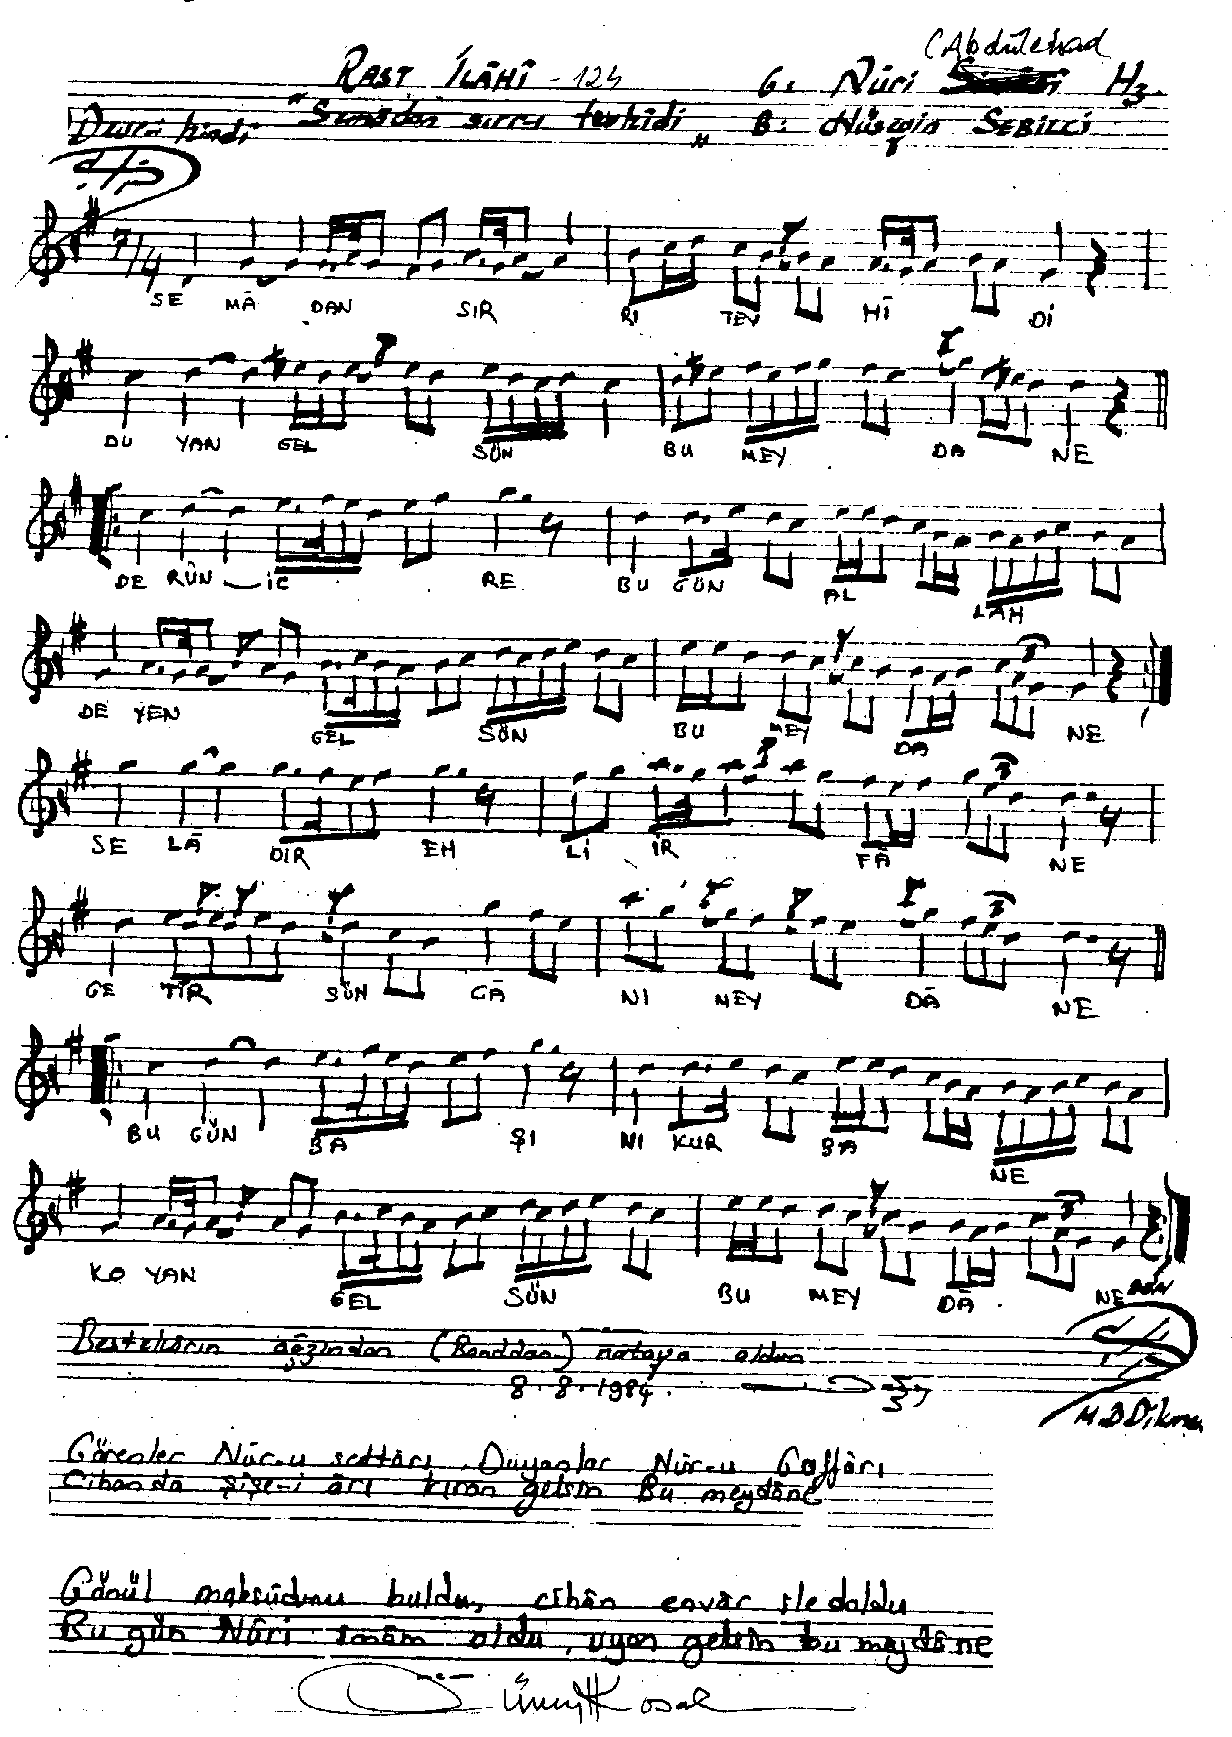 (Abdülehad
RAST İLÂHÎ - 124 G. Nûri Hz.
Devri hindi "Semâdan sırrı tevhîdi" B: Hüseyin SEBİLCİ
7/4
SE MÂ DAN SIR RI TEV HÎ DI
DU YAN GEL SÜN BU MEY DA NE
DE RÛN İÇ RE BU GÜN AL LAH
DE YEN GEL SÜN BU MEY DA NE
SE LÂ DIR EH Lİ İR FÂ NE
GE TİR SÜN CÂ NI MEY DÂ NE
BU GÜN BA ŞI NI KUR BA NE
KO YAN GEL SÜN BU MEY DÂ NE SON
Bestekârın ağzından (Banddan) notaya aldım
8.8.1984.
M.D Dikme
Görenler Nûr-u settârı Duyanlar Nûr-u Gaffârı
Cihanda şişe-i ârı kıran gelsin Bu meydâne
Gönül maksûdunu buldu, cihân envâr ile doldu
Bu gün Nûri imâm oldu, uyan gelsin bu meydâne